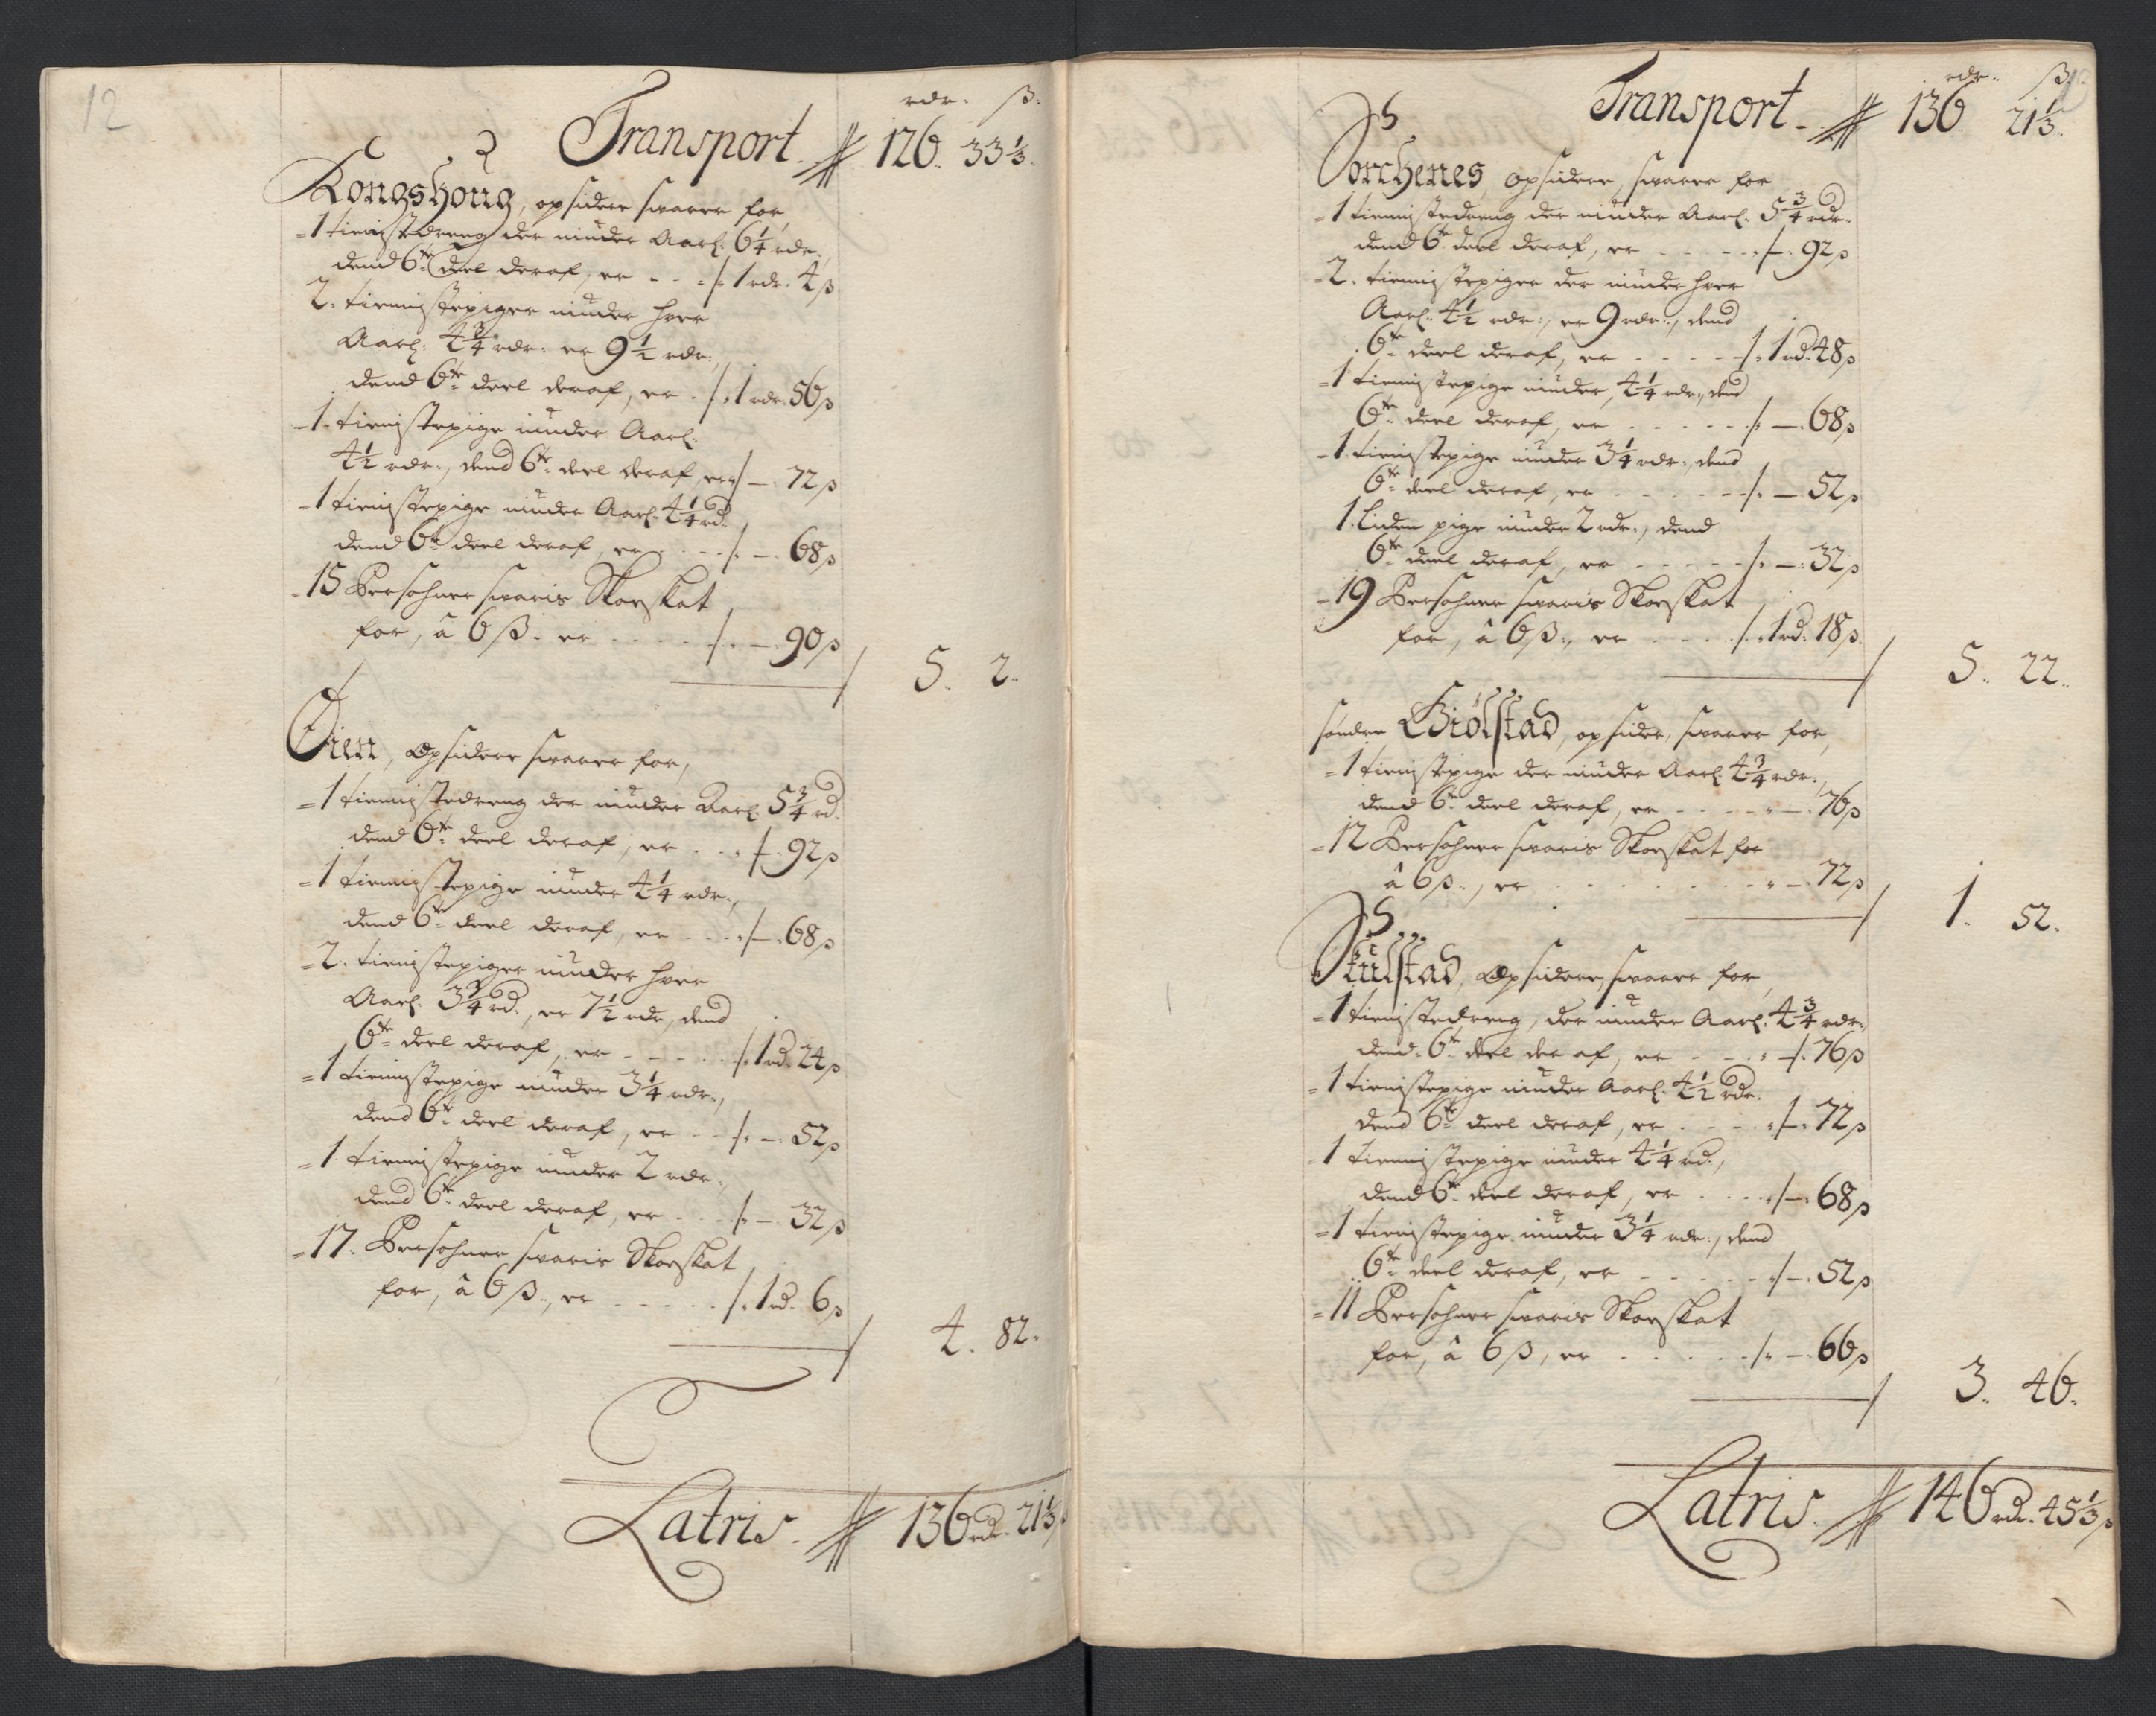 12
rdr. ß.
Transport # 126. 33 1/3.
Kongshoug, opsider svarer for,
1 tienistedreng der niuder Aarl. 6 1/4 rdr.,
dend 6te deel deraf, er - - ./. 1 rdr. 4 ß
2. tiennistepiger niuder hver
Aarl: 4 3/4 rdr: er 9 1/2 rdr:,
dend 6te deel deraf, er . ./. 1 rdr. 56 ß
1. tienistepige niuder Aarl.
4 1/2 rdr:, dend 6te deel deraf, er ./. — 72 ß
1 tienistepige niuder Aarl. 4 1/4 rd.
dend 6te deel deraf, er - - - ./. — 68 ß
15 Persohner svaris Skoeskat
for, â 6 ß. er . . . . . ./. — 90 ß
5. 2.
Öien, Opsidere svarer for,
1 tiennistedreng der niuder Aarl. 5 3/4 rd.
dend 6te deel deraf, er . . ./. 92 ß
1 tiennistepige niuder 4 1/4 rdr.,
dend 6te deel deraf, er . . . ./. — 68 ß
2. tienistepiger niuder hver
Aarl. 3 3/4 rd., er 7 1/2 rdr, dend
6te deel deraf, er - - - . . ./. 1 rd. 24 ß
1 tiennistepige niuder 3 1/4 rdr.,
dend 6te deel deraf, er - - ./. — 52 ß
1 tiennistepige niuder 2 rdr.,
dend 6te deel deraf, er . . ./. — 32 ß
17. Persohner svaris Skoeskat
for, â 6 ß, er - - - . . ./. 1 rd. 6 ß
4. 82.
Latris. # 136 rdr. 21 1/3 ß
rdr. ß
Transport # 136. 21 1/3.
Storchenes, opsider, svarer for
1 tiennistedreng der niuder Aarl. 5 3/4 rdr.
dend 6te deel deraf, er - - - ./. 92 ß
2. tiennistepiger der niuder hver
Aarl. 4 1/2 rdr:, er 9 rdr:, dend
6te deel deraf, er - - - - ./. 1 rd. 48 ß
1 tiennistepige niuder, 4 1/4 rdr:, dend
6te deel deraf, er - - - - ./. — 68 ß
1 tienistepige niuder 3 1/4 rdr:, dend
6te deel deraf, er - - - - ./. — 52 ß
1. Liden pige niuder 2 rdr:, dend
6te deel deraf, er - - - - ./. — 32 ß
19 Persohner svaris Skoeskat
for, â 6 ß:, er - - - . ./. 1 rd. 18 ß.
5. 22.
söndre Giölstad, opsider, svarer for,
1 tienistepige der niuder Aarl. 4 3/4 rdr.,
dend 6te deel deraf, er - - - - " — 76 ß
12 Persohner svaris Skoeskat for
â 6 ß., er . . . . . " — 72 ß
1. 52.
Stulstad, Opsidere, svarer for,
1 tienistedreng, der niuder Aarl. 4 3/4 rdr.,
dend 6te deel der af, er - - . ./. 76 ß
1 tienistepige niuder Aarl. 4 1/2 rdr.
dend 6te deel deraf, er . - . ./. 72 ß
1 tiennistepige niuder 4 1/4 rd.,
dend 6te deel deraf, er . . . ./. — 68 ß
1 tienistepige niuder 3 1/4 rdr., dend
6te deel deraf, er - - - - ./. — 52 ß
11 Persohner svaris Skoeskat
for, â 6 ß, er . . . . . ./. — 66 ß
3. 46.
Latris. # 146 rdr. 45 1/3 ß